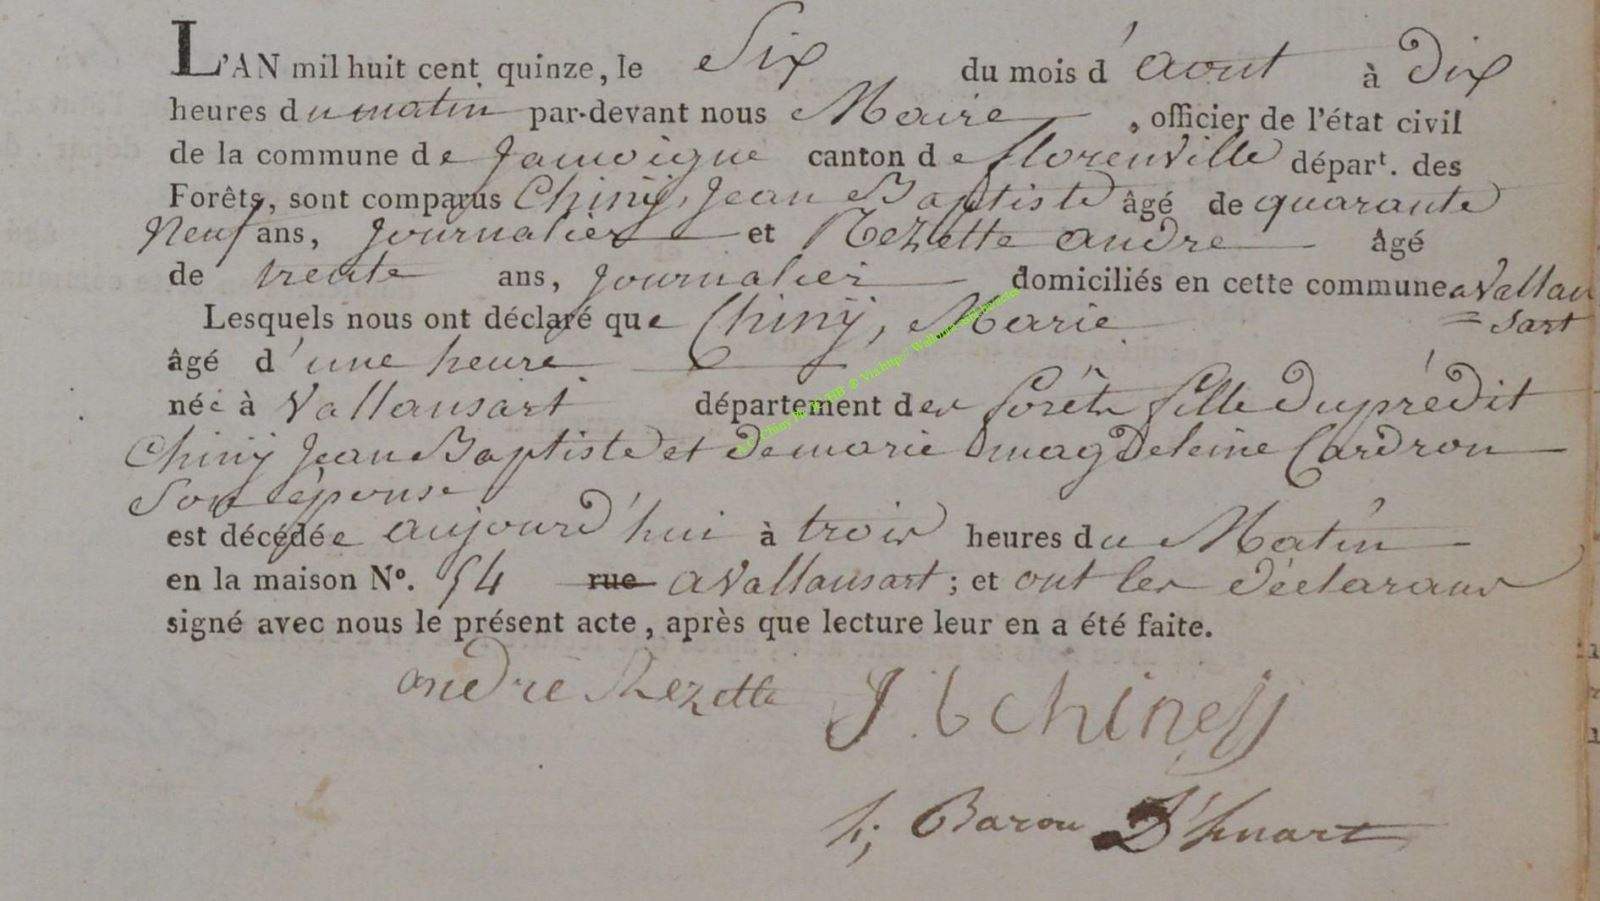 L'AN mil huit cent quinze, le Six du mois d'aout à dix
heures du matin par-devant nous Maire , officier de l'état civil
de la commune de Jamoigne canton de florenville départ. des
Forêts, sont comparus Chinÿ, Jean Baptiste âgé de quarante
Neuf ans, Journalier et Rezette andré âgé
de trente ans, Journalier domiciliés en cette commune a Vallan
= sart
Lesquels nous ont déclaré que Chinÿ, Marie
âgé d'une heure
née à Vallansart département des forêts fille du prédit
Chinÿ Jean Baptiste et de marie magdeleine Cardron
Son épouse
est décédée aujourd'hui à trois heures du Matin
en la maison N°. 54 rue a Vallansart ; et ont les déclarans
signé avec nous le présent acte, après que lecture leur en a été faite.
andre Rezette J b chineÿ
Baron D'huart